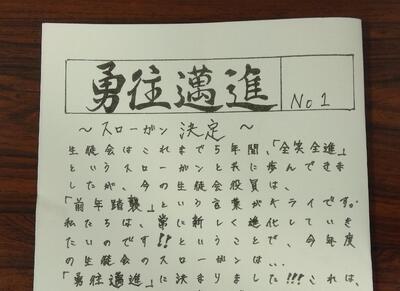 勇往邁進
No 1
～スローガン決定～
生徒会はこれまで5年間、「全笑全進」
というスローガンと共に歩んできま
したが、今の生徒会役員は、
「前年踏襲」という言葉がキライです。
私たちは、常に新しく進化していき
たいのです!!ということで、今年度
の生徒会のスローガンは...
「勇往邁進」に決まりました!!!これは、